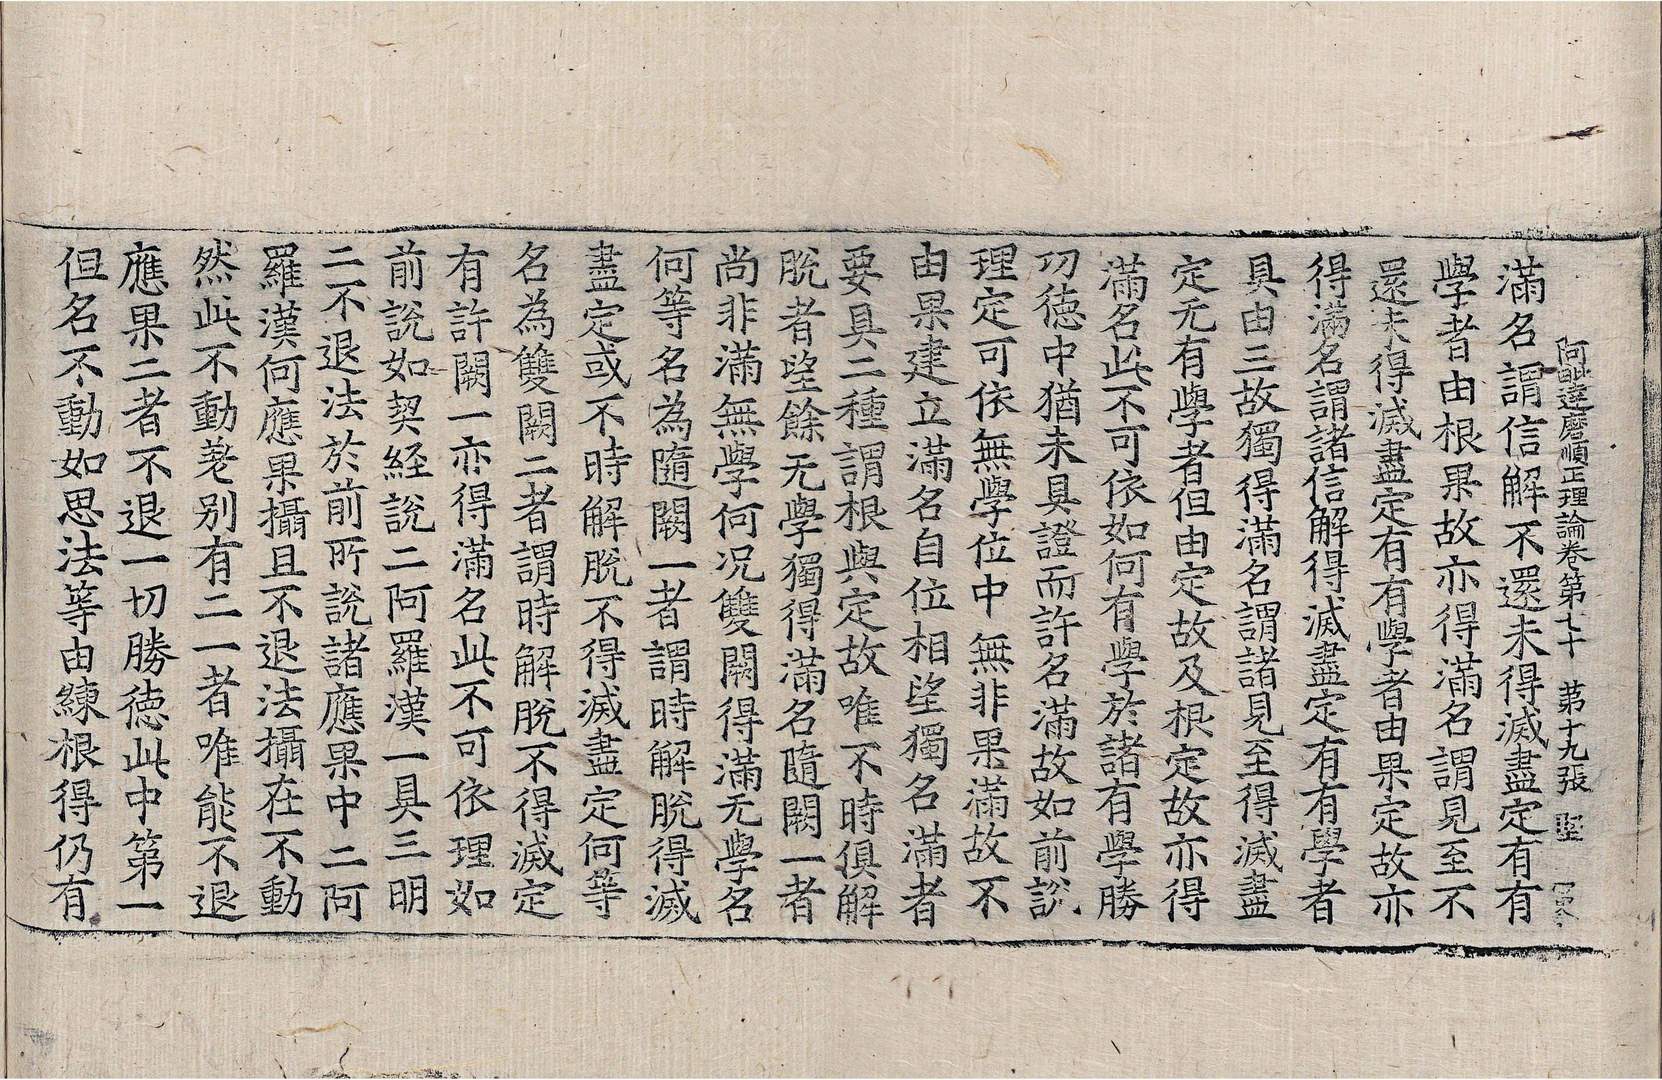 阿毗達磨順正理論卷第七十　第十九張　堅
滿名謂信解不還未得滅盡定有有
學者由根果故亦得滿名謂見至不
還未得滅盡定有有學者由果定故亦
得滿名謂諸信解得滅盡定有有學者
具由三故獨得滿名謂諸見至得滅盡
定无有學者但由定故及根定故亦得
滿名此不可依如何有學於諸有學勝
功德中猶未具證而許名滿故如前說
理定可依無學位中無非果滿故不
由果建立滿名自位相望獨名滿者
要具二種謂根與定故唯不時俱解
脫者望餘无學獨得滿名隨闕一者
尚非滿無學何況雙闕得滿无學名
何等名為隨闕一者謂時解脫得滅
盡定或不時解脫不得滅盡定何等
名為雙闕二者謂時解脫不得滅定
有許闕一亦得滿名此不可依理如
前說如契經說二阿羅漢一具三明
二不退法於前所說諸應果中二阿
羅漢何應果攝且不退法攝在不動
然此不動差別有二一者唯能不退
應果二者不退一切勝德此中第一
但名不動如思法等由練根得仍有